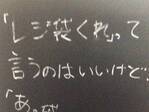 「レジ袋くれ」って
言うのはいいけど、
「あっ袋